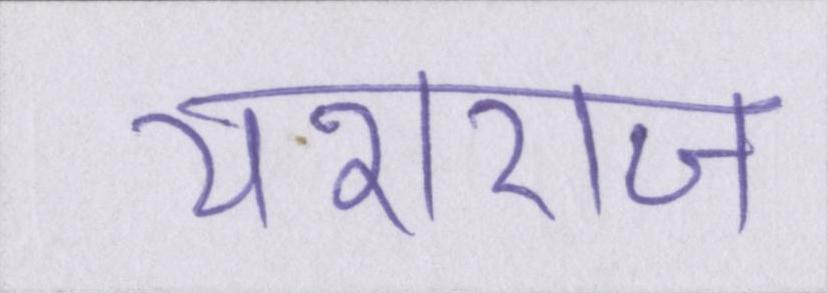 यशराज